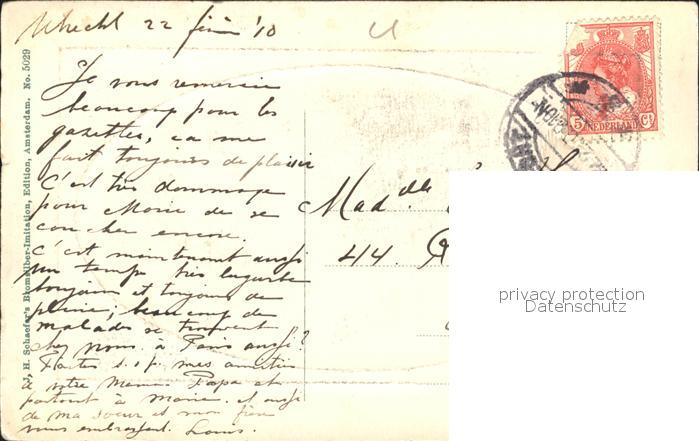 Utrecht 22 février '10
Je vous remercie
beaucoup pour les
gazettes, ca me
fait toujours de plaisir
C'est très dommage
pour Marie de se
coucher encore.
C'est maintenant aussi
un temps très lugubre
toujours et toujours de
pleine, beaucoup de
malades se trouvent
chez nous. à Paris aussi?
Faites s.s.p. mes amitiés
à votre Maman Papa et
partout à Marie. et aussi
de ma soeur et mon frère
vous embrassent. Louis.
Mad.
44.
J. H. Schaefer's Bromsilber-Imitation, Edition, Amsterdam. No. 5029
5 NEDERLAND Ct
privacy protection
Datenschutz